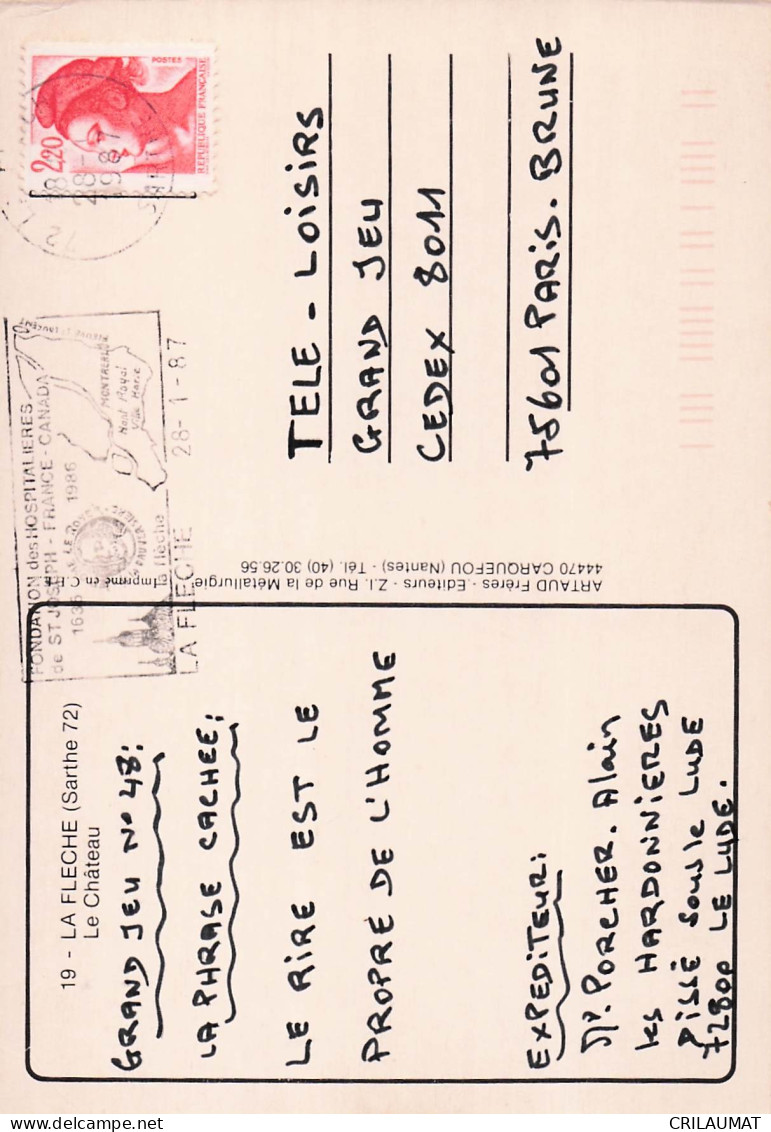 19 - LA FLECHE (Sarthe 72)
Le Château
GRAND JEU N° 48:
LA PHRASE CACHEE:
LE RIRE EST LE
PROPRE DE L'HOMME
EXPEDITEUR:
Mr. PORCHER. Alain
les HARDONNIERES
Dissé sous le LUDE
72800 LE LUDE.
ARTAUD Frères - Editeurs - Z.I. Rue de la Métallurgie
44470 CARQUEFOU (Nantes) - Tél. (40) 30.26.56
Imprimé en C.E.E.
FONDATION des HOSPITALIERES
de ST JOSEPH - FRANCE - CANADA
1636 1986
MONTREAL
Mont Royal
Ville Marie
la flèche
LA FLECHE 28-1-87
72
18
28-
1987
SARTHE
2,20
POSTES
REPUBLIQUE FRANÇAISE
TELE - LOISIRS
GRAND JEU
CEDEX 8011
75601 PARIS. BRUNE
CRILAUMAT